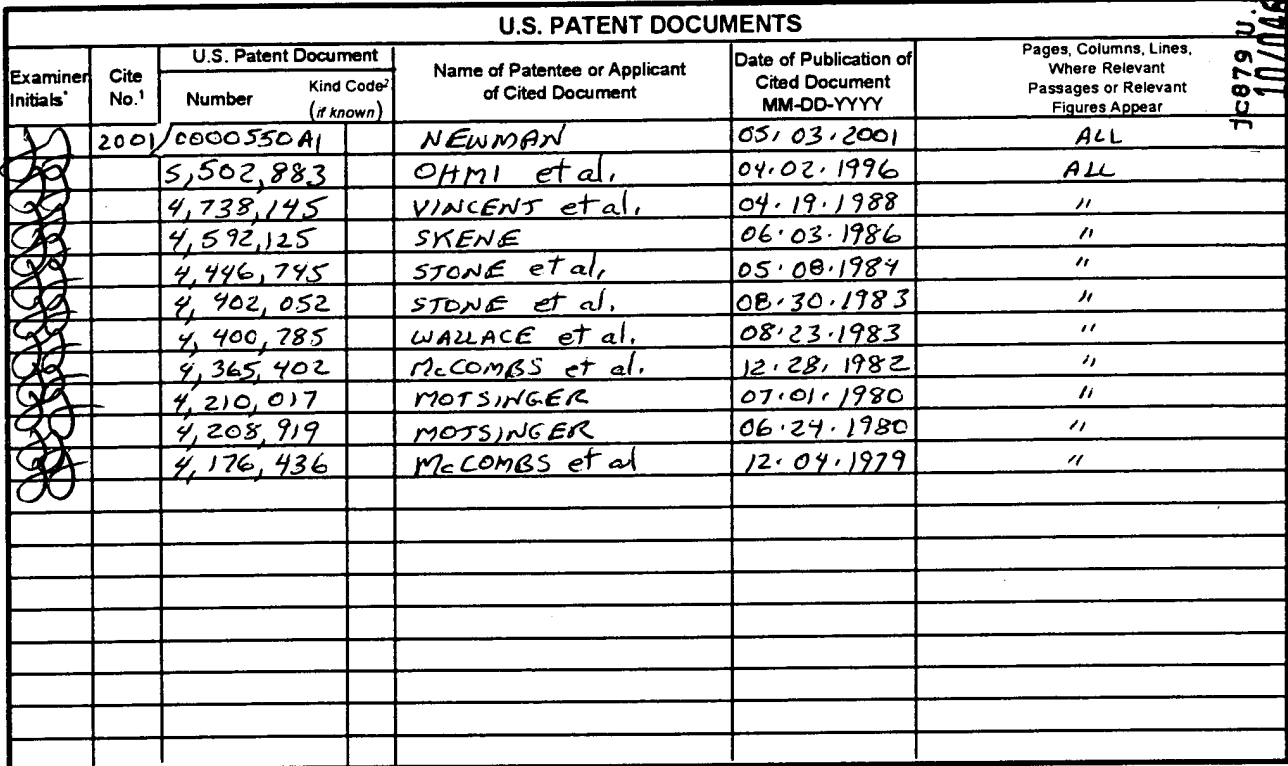 U.S. PATENT DOCUMENTS
Examiner Initials* Cite No.¹ U.S. Patent Document Number Kind Code² (if known) Name of Patentee or Applicant of Cited Document Date of Publication of Cited Document MM-DD-YYYY Pages, Columns, Lines, Where Relevant Passages or Relevant Figures Appear
2001/0000550A1 NEWMAN 05.03.2001 ALL
5,502,883 OHMI et al. 04.02.1996 ALL
4,738,145 VINCENT et al. 04.19.1988 "
4,592,125 SKENE 06.03.1986 "
4,446,745 STONE et al. 05.08.1984 "
4,402,052 STONE et al. 08.30.1983 "
4,400,785 WALLACE et al. 08.23.1983 "
4,365,402 McCOMBS et al. 12.28.1982 "
4,210,017 MOTSINGER 07.01.1980 "
4,208,919 MOTSINGER 06.24.1980 "
4,176,436 McCOMBS et al 12.04.1979 "
jc879 U.